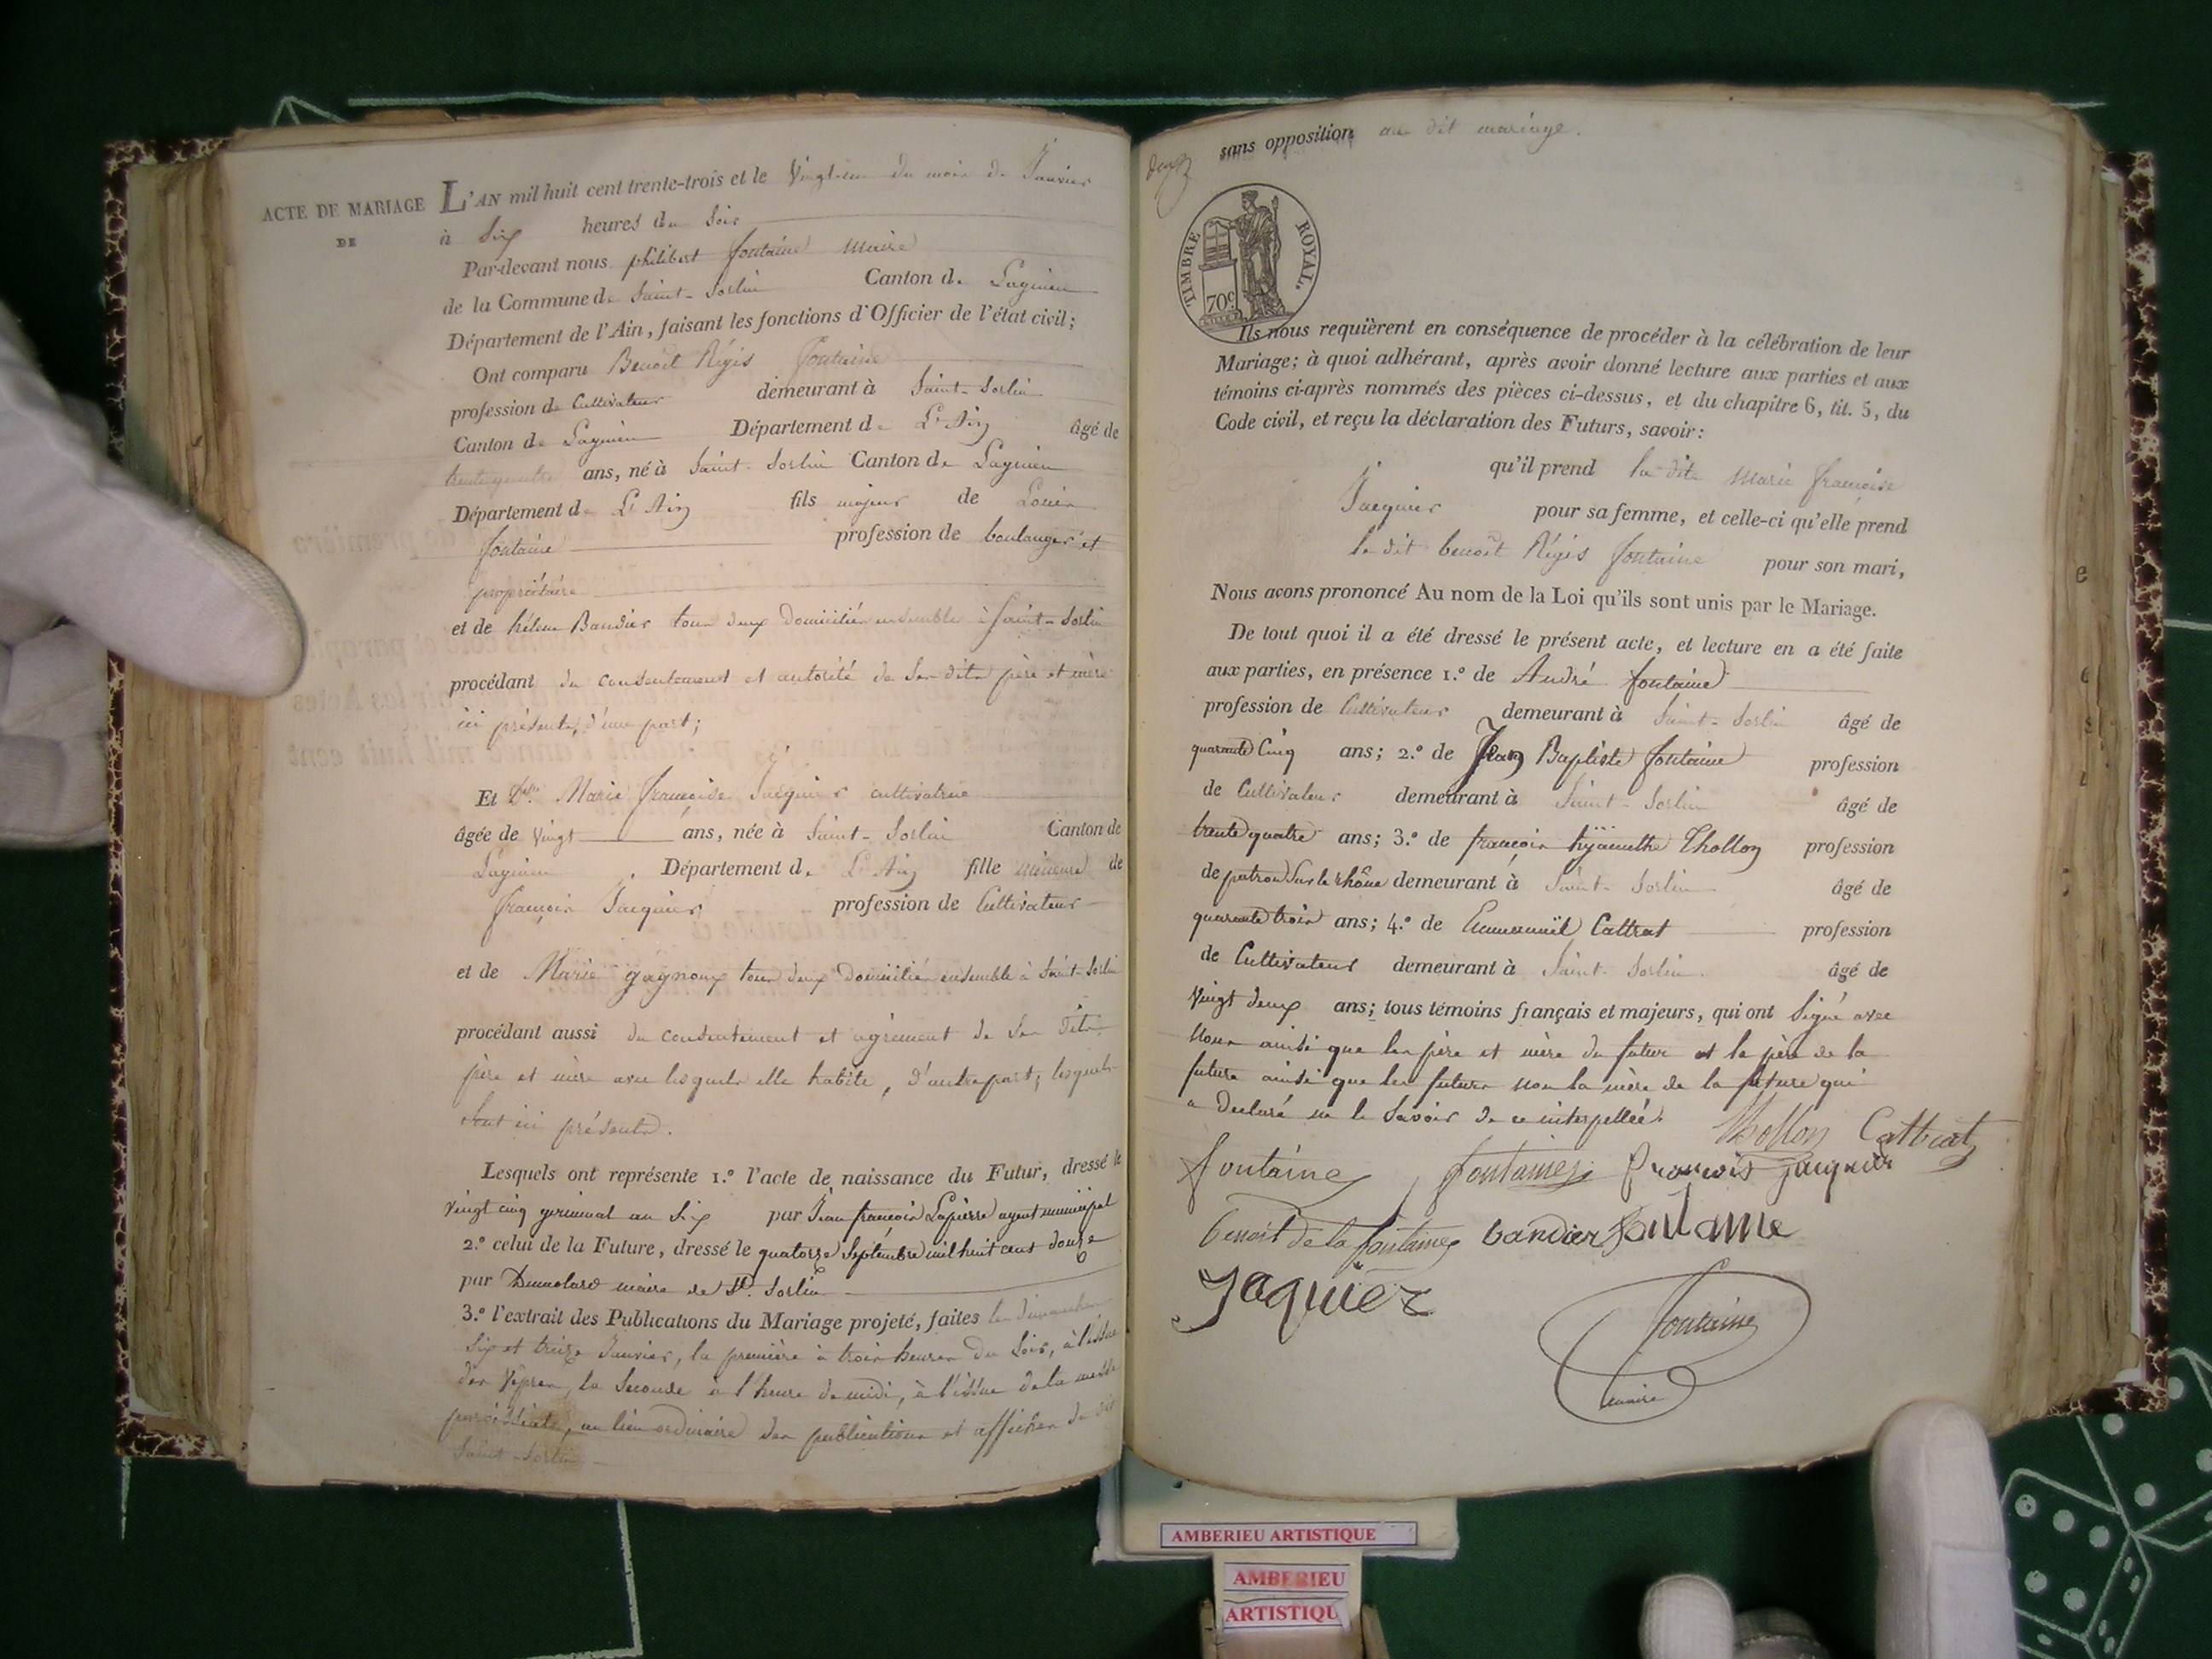 ACTE DE MARIAGE
DE
L'AN mil huit cent trente-trois et le Vingt-un du mois de Janvier
à Six heures du Soir
Par-devant nous philibert fontaine Maire
de la Commune de Saint-Sorlin Canton de Lagnieu
Département de l'Ain, faisant les fonctions d'Officier de l'état civil;
Ont comparu Benoît Régis fontaine
profession de Cultivateur demeurant à Saint-Sorlin
Canton de Lagnieu Département de L'Ain âgé de
trente quatre ans, né à Saint-Sorlin Canton de Lagnieu
Département de L'Ain fils majeur de Louis
fontaine profession de boulanger et
propriétaire
et de hélène Bandier tous deux Domiciliés ensemble à Saint-Sorlin
procédant du consentement et autorité de Ses dits père et mère
ici présents, d'une part;
Et Dlle Marie françoise Jacquier cultivatrice
âgée de vingt ans, née à Saint-Sorlin Canton de
Lagnieu Département de L'Ain fille mineure de
françois Jacquier profession de Cultivateur
et de Marie gagnoux tous deux Domiciliés ensemble à Saint-Sorlin
procédant aussi du consentement et agrément de Ses dits
père et mère avec lesquels elle habite, d'autre part; lesquels
Sont ici présents.
Lesquels ont représente 1.º l'acte de naissance du Futur, dressé le
Vingt cinq germinal an Six par Jean françois Lapierre agent municipal
2.º celui de la Future, dressé le quatorze Septembre mil huit cent douze
par Dumolard maire de St. Sorlin
3.º l'extrait des Publications du Mariage projeté, faites les dimanches
Six et treize Janvier, la première à trois heures du Soir, à l'issue
des Vêpres, la Seconde à l'heure de midi, à l'issue de la messe
paroissiale, au lieu ordinaire des publications et affiches du dit
Saint-Sorlin
sans opposition au dit mariage.
deux
TIMBRE ROYAL.
70c
Ils nous requièrent en conséquence de procéder à la célébration de leur
Mariage; à quoi adhérant, après avoir donné lecture aux parties et aux
témoins ci-après nommés des pièces ci-dessus, et du chapitre 6, tit. 5, du
Code civil, et reçu la déclaration des Futurs, savoir:
qu'il prend la dite Marie françoise
Jacquier pour sa femme, et celle-ci qu'elle prend
le dit benoît Régis fontaine pour son mari,
Nous avons prononcé Au nom de la Loi qu'ils sont unis par le Mariage.
De tout quoi il a été dressé le présent acte, et lecture en a été faite
aux parties, en présence 1.º de André fontaine
profession de Cultivateur demeurant à Saint-Sorlin âgé de
quarante Cinq ans; 2.º de Jean Baptiste fontaine profession
de Cultivateur demeurant à Saint-Sorlin âgé de
trente quatre ans; 3.º de françois hyacinthe Thollon profession
de patron Sur le rhône demeurant à Saint-Sorlin âgé de
quarante trois ans; 4.º de Emmanuël Cattrat profession
de Cultivateur demeurant à Saint-Sorlin âgé de
Vingt deux ans; tous témoins français et majeurs, qui ont Signé avec
Nous ainsi que les père et mère du futur et le père de la
future ainsi que les futurs non la mère de la future qui
a declaré ne le Savoir de ce interpellée.
Thollon Cattrat
fontaine fontaine françois jacquier
benoit de la fontaine bandier fontaine
Jaquier
fontaine
maire
AMBERIEU ARTISTIQUE
AMBERIEU
ARTISTIQU